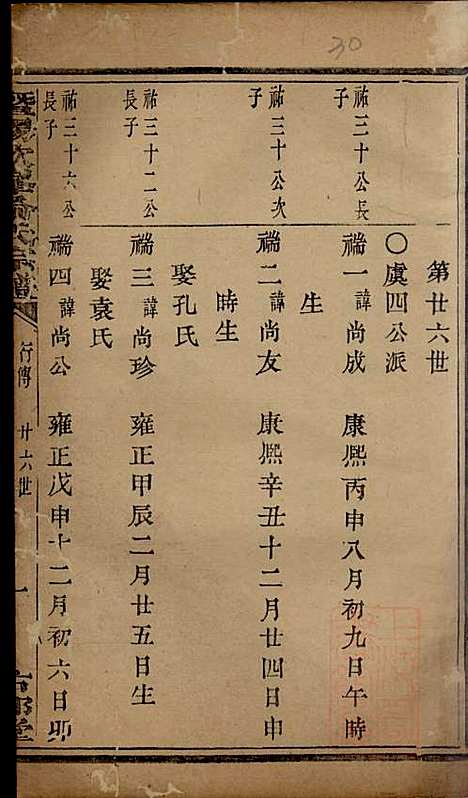 30
第廿六世
〇虞四公派
祐三十公長
子
端一諱尚成 康熙丙申八月初九日午時
生
祐三十公次
子
端二諱尚友 康熙辛丑十二月廿四日申
時生
娶孔氏
祐三十二公
長子
端三諱尚珍 雍正甲辰二月廿五日生
娶袁氏
祐三十六公
長子
端四諱尚公 雍正戊申十二月初六日卯
行傳 廿六世 一